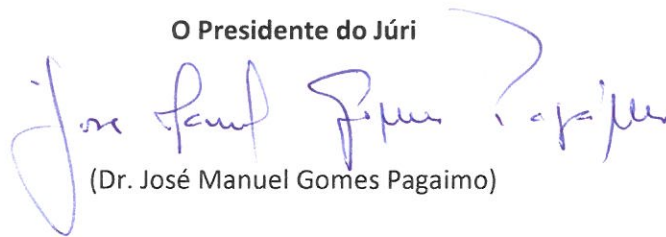 O Presidente do Júri
José Manuel Gomes Pagaimo
(Dr. José Manuel Gomes Pagaimo)